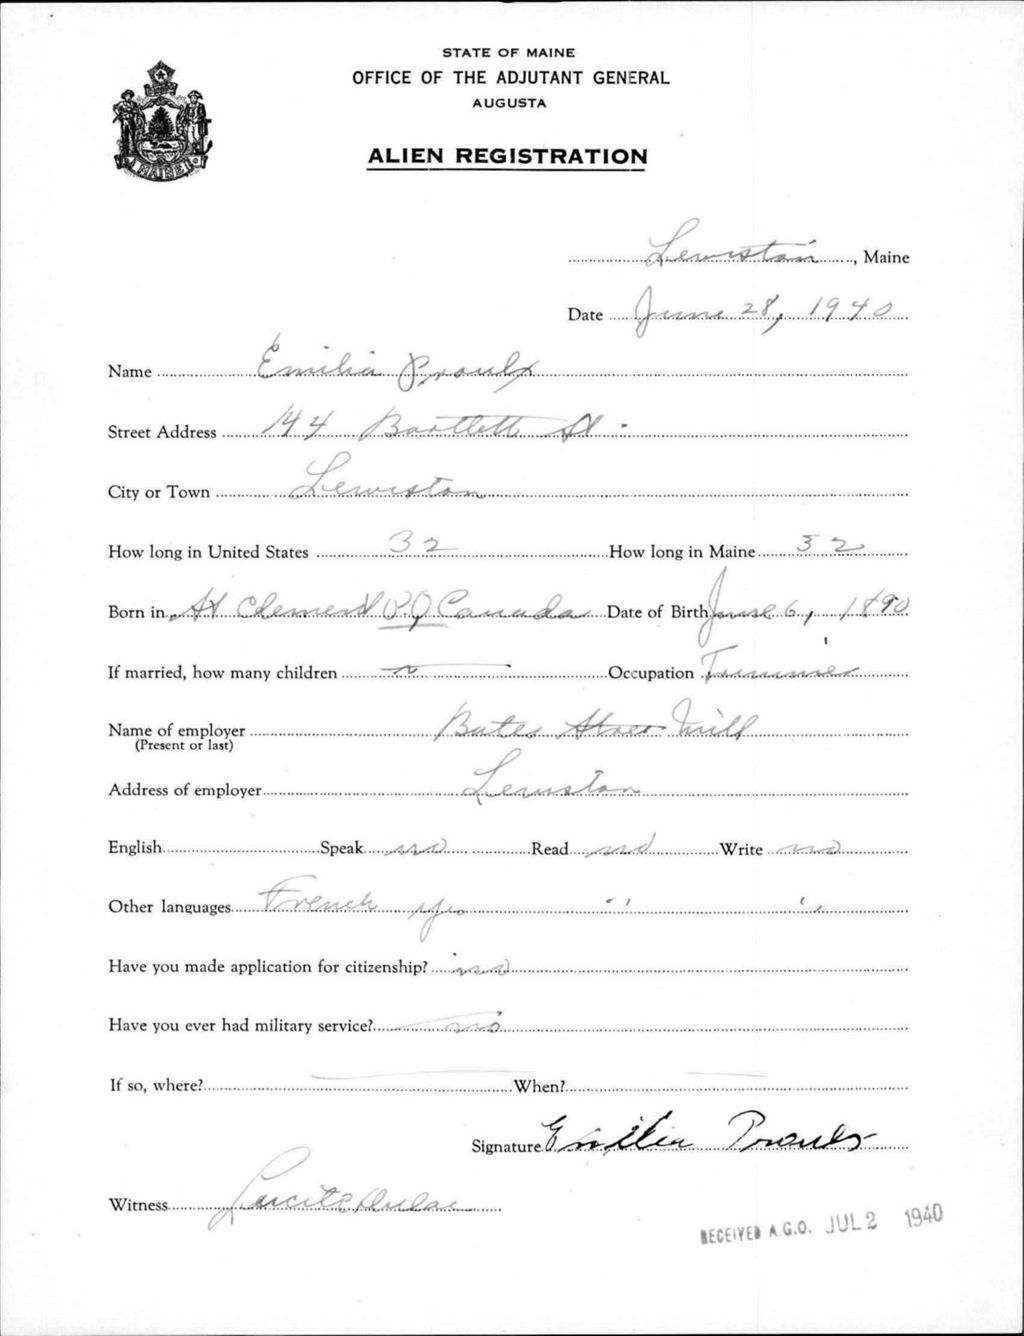 STATE OF MAINE
OFFICE OF THE ADJUTANT GENERAL
AUGUSTA
MAINE
ALIEN REGISTRATION
Lewiston, Maine
Date June 28, 1940
Name Emilia Proulx
Street Address 144 Bartlett St.
City or Town Lewiston
How long in United States 32 How long in Maine 32
Born in St Clement P.Q Canada Date of Birth June 6, 1890
If married, how many children — Occupation Trimmer
Name of employer Bates Mill
(Present or last)
Address of employer Lewiston
English Speak no Read no Write no
Other languages French yes " "
Have you made application for citizenship? no
Have you ever had military service? no
If so, where? — When? —
Signature Emilia Proulx
Witness Lucile
RECEIVED A.G.O. JUL 2 1940